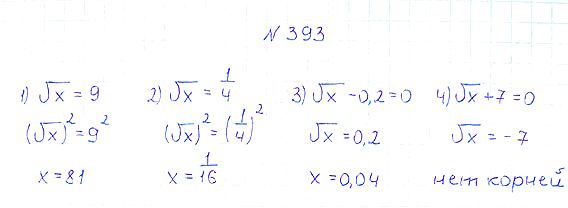 № 393
1) √x = 9
(√x)² = 9²
x = 81
2) √x = 1/4
(√x)² = (1/4)²
x = 1/16
3) √x - 0,2 = 0
√x = 0,2
x = 0,04
4) √x + 7 = 0
√x = - 7
нет корней